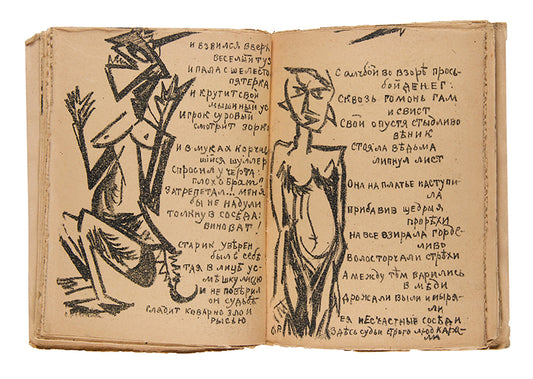 и взвился вверх
веселий туз
и пала с шелесто
пятерка
и крутит свой
мышиный ус
игрок суровый
смотрит зорко
и в муках корчив
шийся шуллер
спросил у черта:
плохо брат?
затрепетал... меня
бы не надули
толкнув соседа:
виноват!
старик уверен
был в себе
тая в лице ус-
мешку лисью
и не поверил
он судьбе
глядит коварно зло и
рысью
С алчбой во взорѣ прось-
бой ДЕНЕГ:
Сквозь гомонь гам
и свист
Свой опустя стыдливо
вѣник
стояла вѣдьма
липнул лист
Она на платье наступи-
ла
Прибавив щедрыя
прорѣхи
на все взирала горде-
ливо
волос торхали стрѣхи
А между тѣм варились
в мѣди
Дрожали выли и ныря-
ли
ея несчастные сосѣди
Здѣсь судьи строго люд кара-
ли